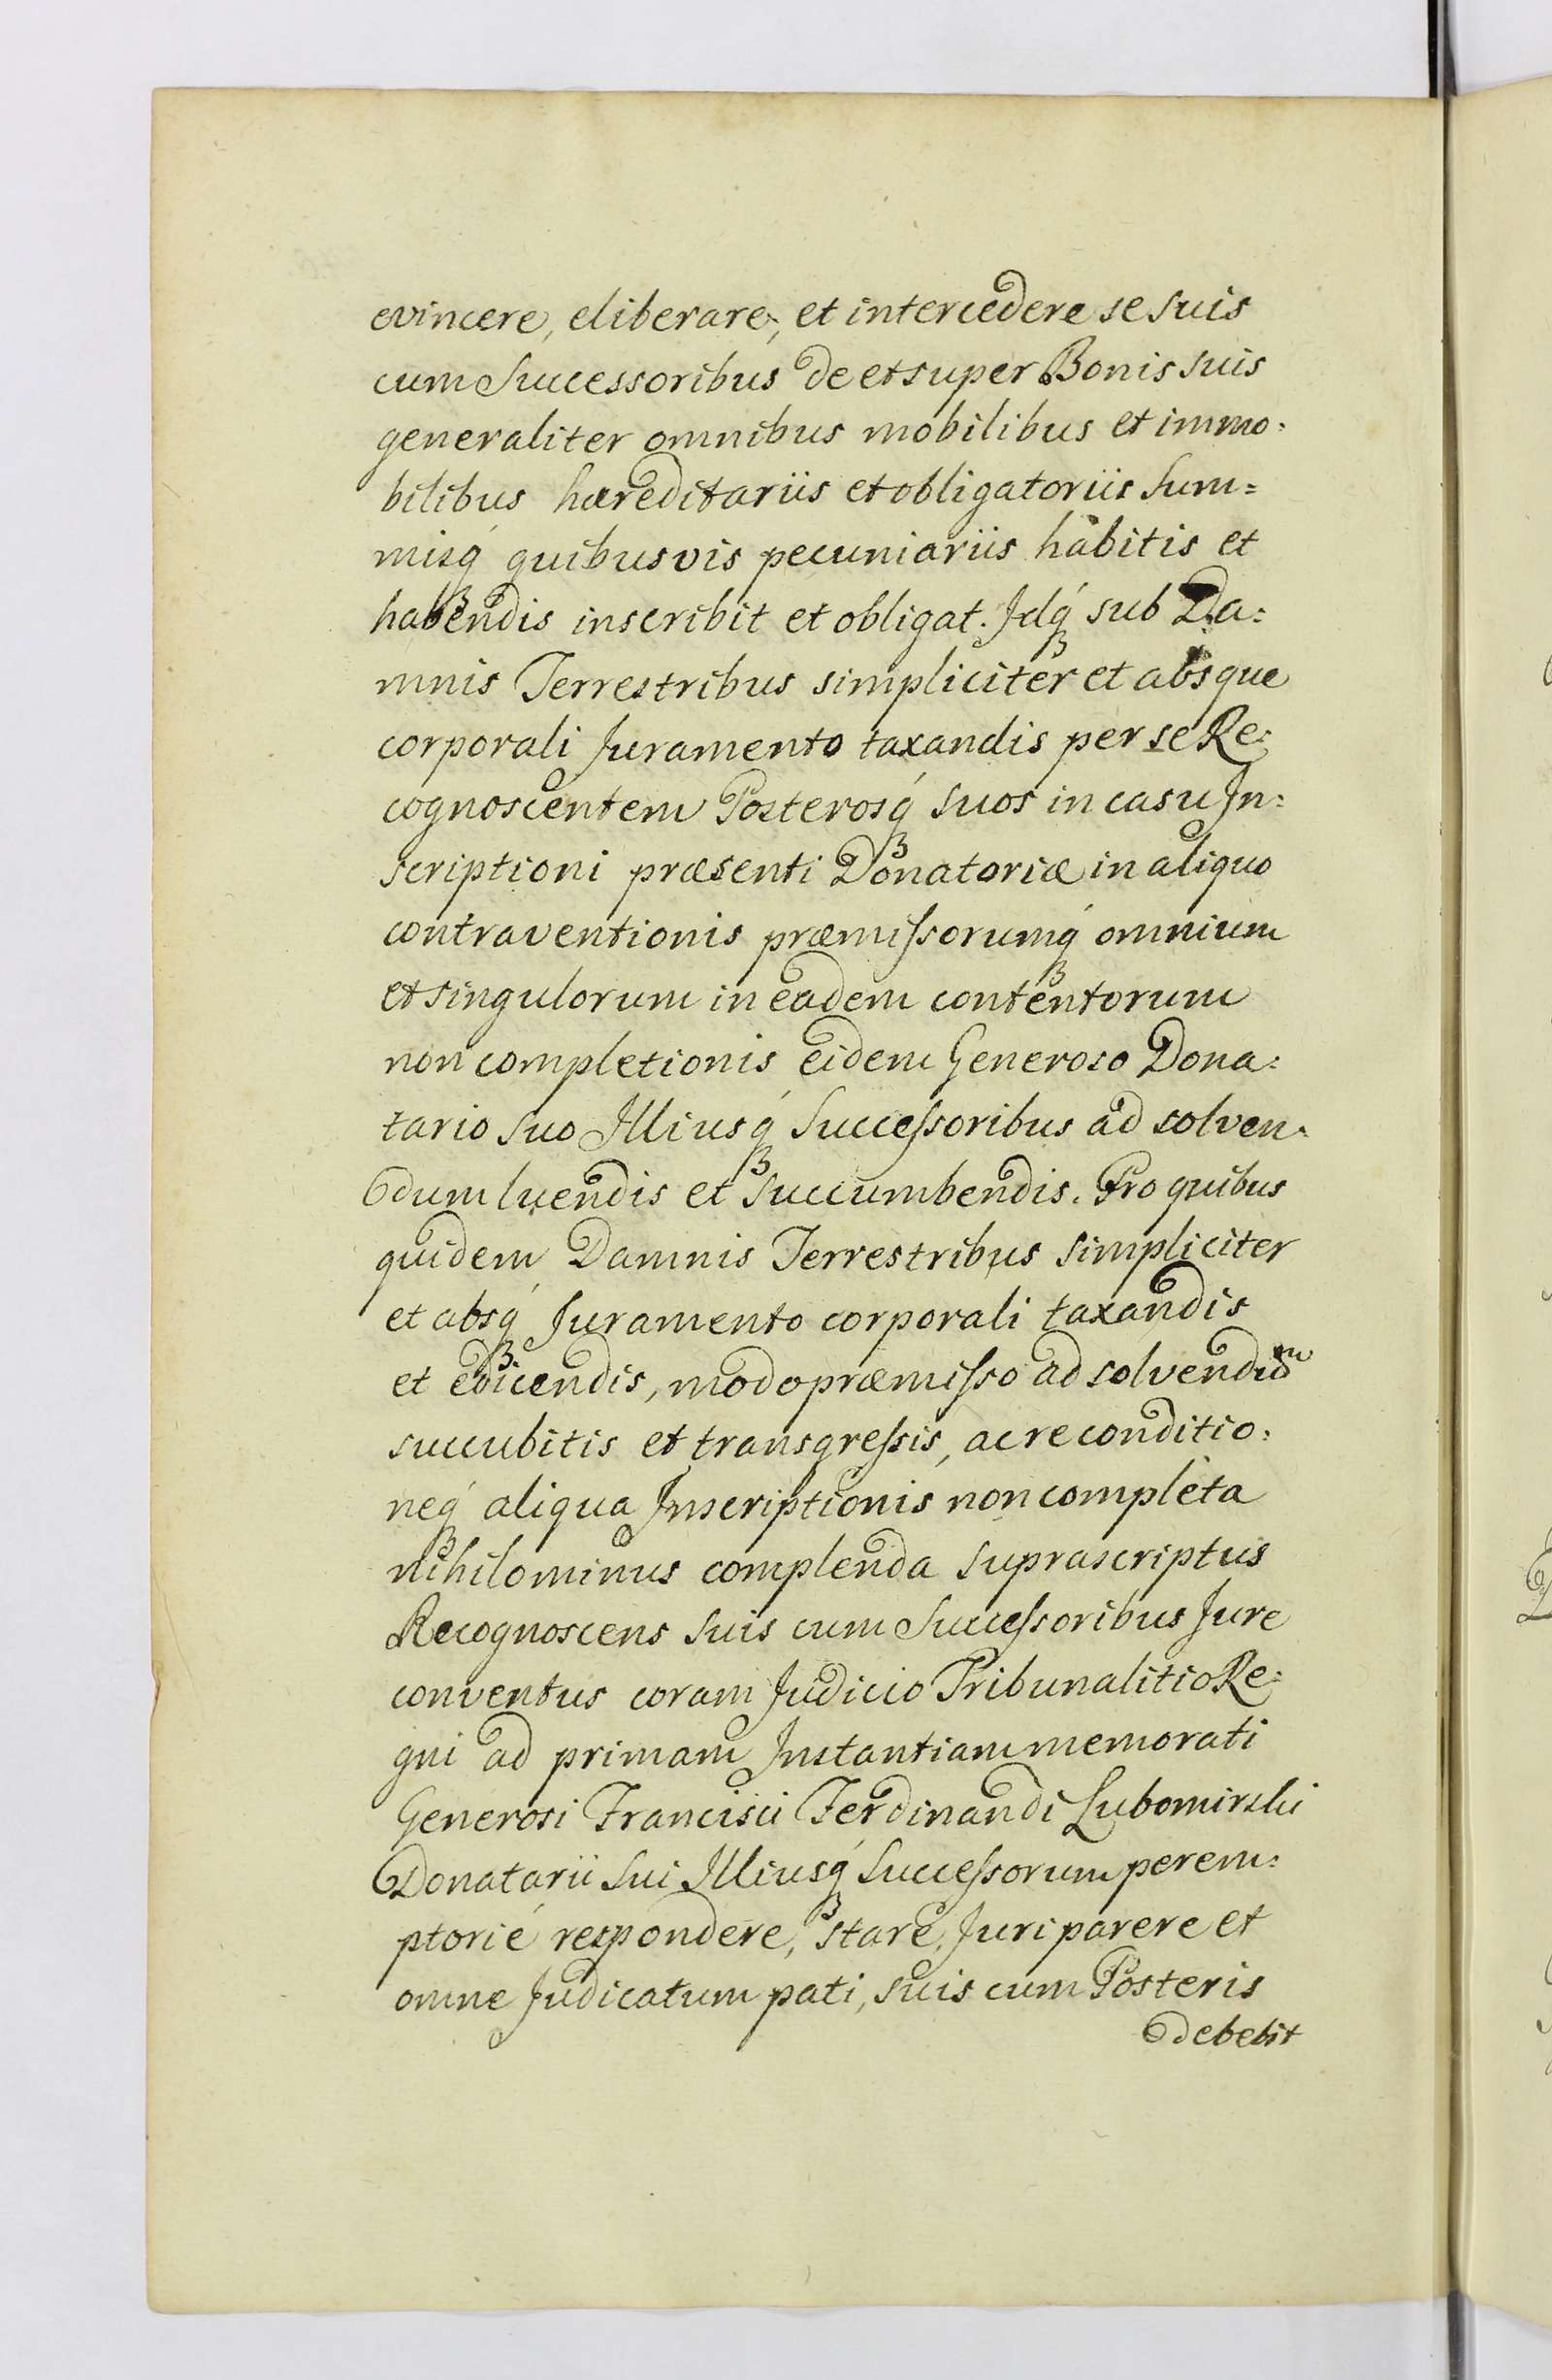 evincere, eliberare, et intercedere se suis
cum Successoribus de et super Bonis suis
generaliter omnibus mobilibus et immo:
bilibus hæreditariis et obligatoriis Sum=
misq́ꝫ quibusvis pecuniariis habitis et
habendis inscribit et obligat. Idq́ꝫ sub Da:
mnis Terrestribus simpliciter et absque
corporali Juramento taxandis per se Re:
cognoscentem Posterosq́ꝫ suos in casu In:
scriptioni præsenti Donatoriæ in aliquo
contraventionis præmiſsorumq́ꝫ omnium
et singulorum in eadem contentorum
non completionis eidem Generoso Dona:
tario suo Illiusq́ꝫ Succeſsoribus ad solven:
dum luendis et succumbendis. Pro quibus
quidem Damnis Terrestribus simpliciter
et absq́ꝫ Juramento corporali taxandis
et edicendis, modo præmiſso ad solvendum
succubitis et transgreſsis, ac re conditio:
neq́ꝫ aliqua Inscriptionis non completa
nihilominus complenda suprascriptus
Recognoscens suis cum Succeſsoribus Jure
conventus coram Judicio Tribunalitio Re:
gni ad primam Instantiam memorati
Generosi Francisci Ferdinandi Lubomirski
Donatarii sui Illiusq́ꝫ Succeſsorum perem:
ptorié respondere, stare, Juri parere et
omne Judicatum pati, suis cum Posteris
debebit